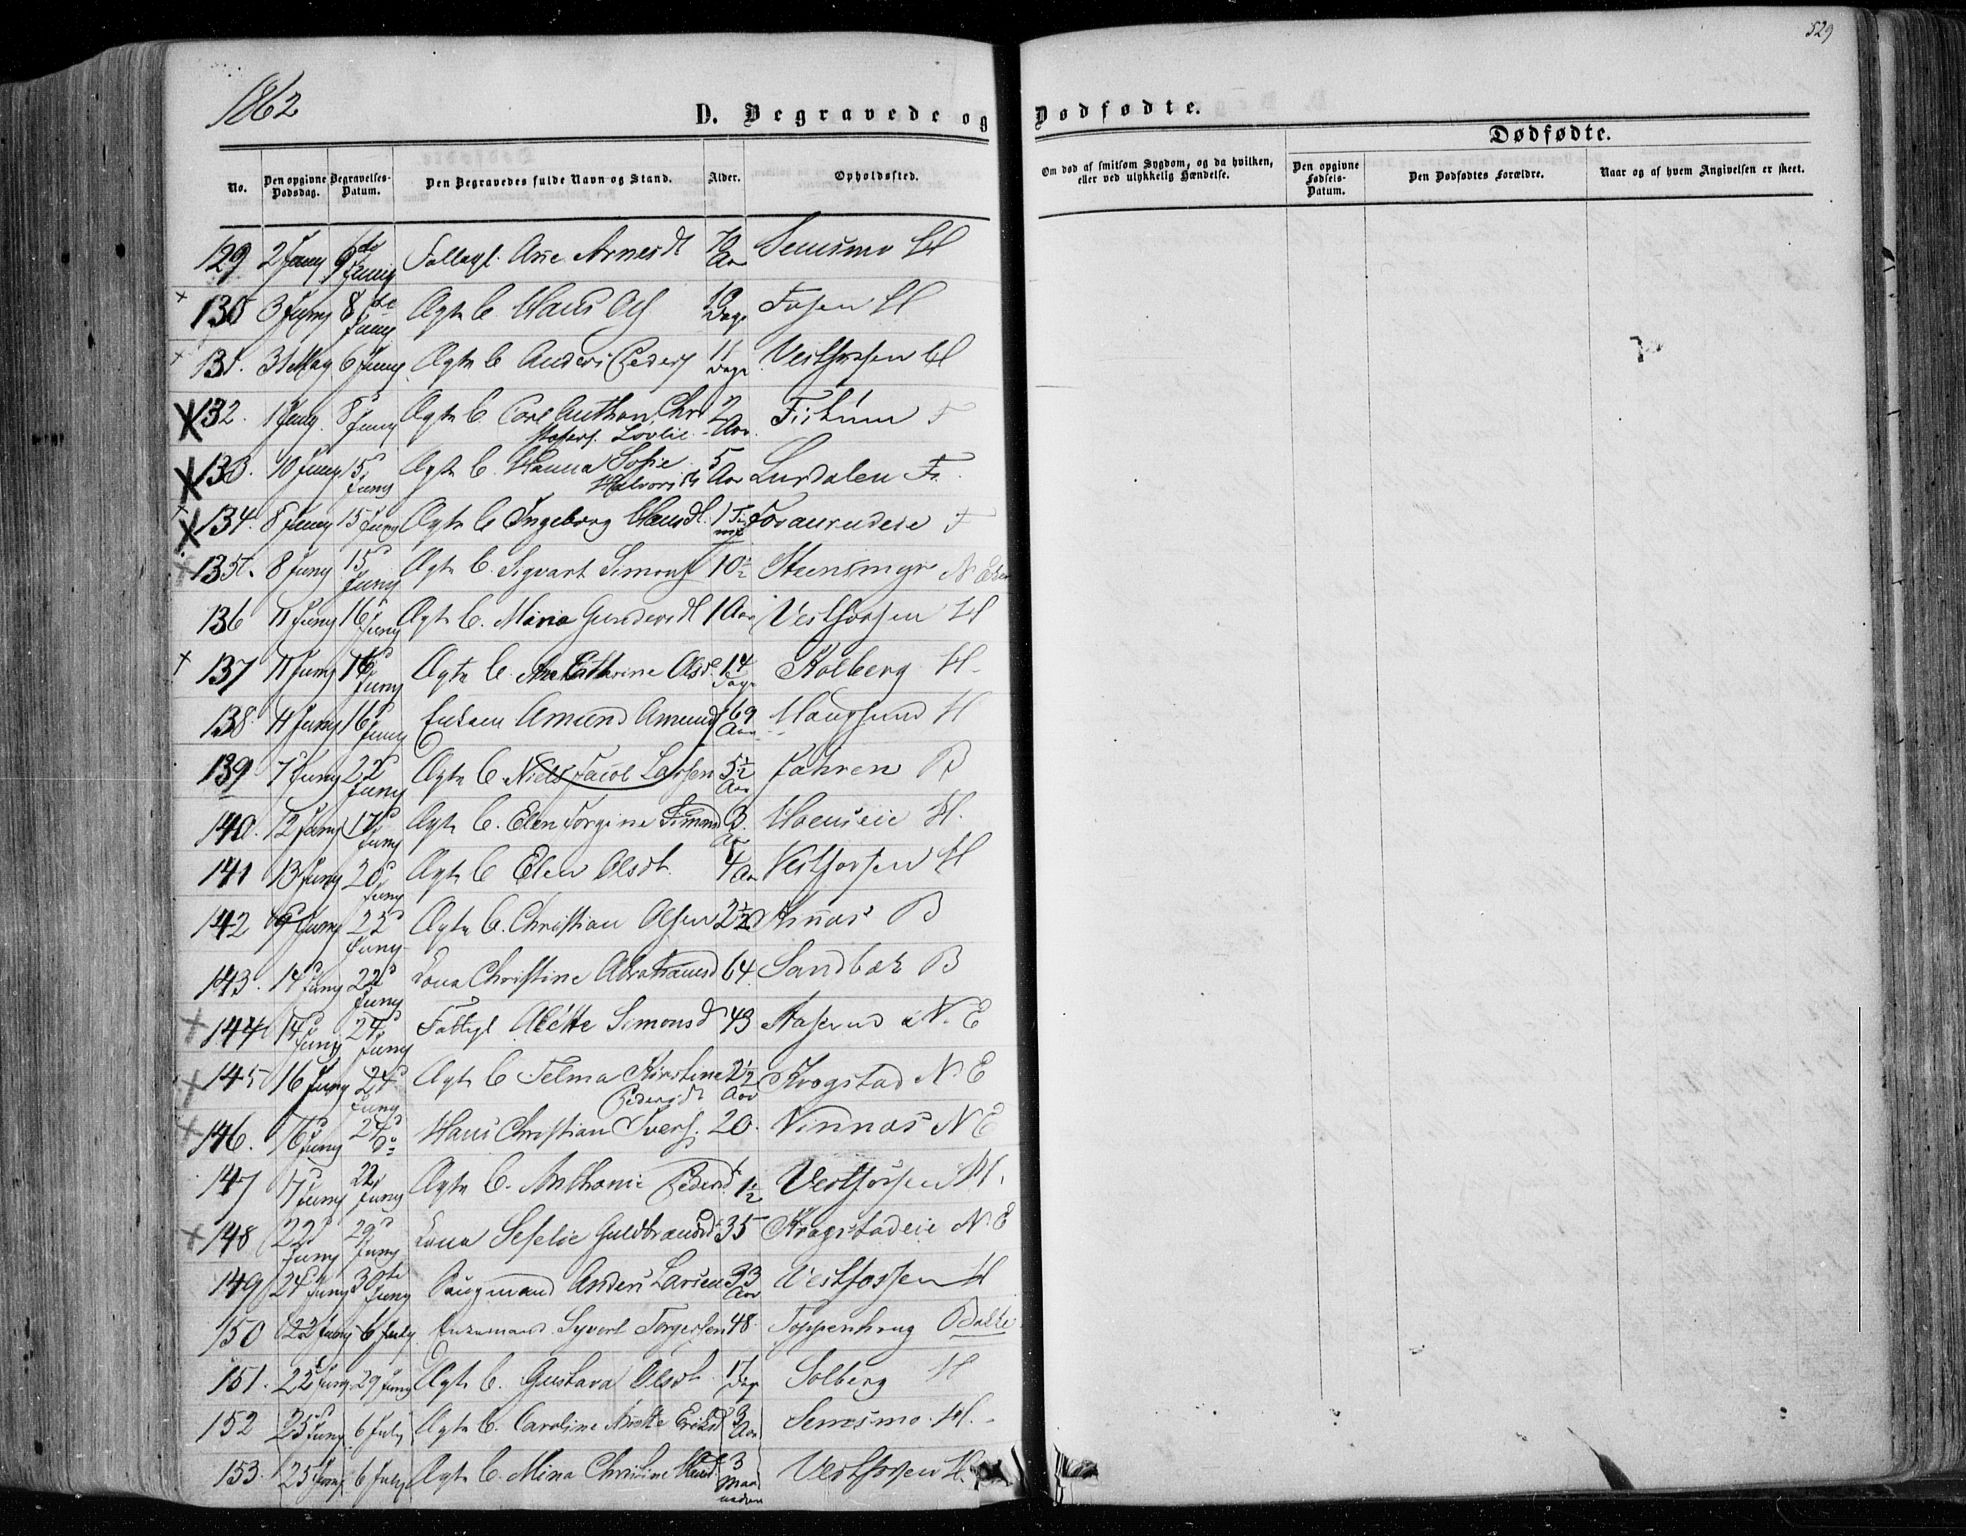 529
1862
D. Begravede og Dødfødte.
Dødfødte.
No. Den opgivne Dødsdag. Begravelses-Datum. Den Begravedes fulde Navn og Stand. Alder. Opholdssted. Om død af smitsom Sygdom, og da hvilken, eller ved ulykkelig Hændelse. Den opgivne Fødsels-Datum. Den Dødfødtes Forældre. Naar og af hvem Angivelsen er skeet.
129 2 Juny 9de Juny Arnesdt 70 Aar Semsmo H
130 3 Juny 8de Juny Ægte B. Hans Ols 10 Dage Fosen H
131. 31 May 6 Juny Ægte B Anders Peders 11 Dage Vestfossen H
132. 1 Juny 8 Juny Ægte B. Carl Anthon Chri
stofers. Lovlie 2 Aar Fiskum F
133. 10 Juny 15 Juny Ægte B. Hanna Sofie
Halvorsdt 5 Aar Lurdalen F.
134. 8 Juny 15 Juny Ægte B Ingeborg Hansdt. 1 Time F
135. 8 Juny 15 Juny Ægte B. Sigvart Simons 10½ Steensmyr N. Eker
136 11 Juny 16 Juny Ægte B. Maria Gundersdt 1 Aar Vestfossen H
137 11 Juny 16 Juny Ægte B. Ane Cathrine Olsd. 14 Dage Kolberg H
138 11 Juny 16 Juny Enkem Amund Amunds 69 Aar Hougsund H
139 7 Juny 22 Juny Ægte B. Niels Jacob Larsen 5½ Aar Jahren B
140. 12 Juny 17 Juny Ægte B. Elen Torgine Simensd 3. Hoenseie H.
141 13 Juny 20 Juny Ægte B Elen Olsdt. 4 Aar Vestfossen H
142 9 Juny 22 Juny Ægte B. Christian Olsen 2½ B
143. 14 Juny 22 Juny Kona Christine Abrahamsd 64. Sandbæk B
144 14 Juny 24 Juny Fattigl Alette Simonsd 43 N. E
145 16 Juny 24 Juny Ægte B Telma Kirstine
Pedersdt 2½ Aar Krogstad N. E
146. 16 Juny 24 Do Hans Christian Ivers. 20. Vinnæs N E
147 17 Juny 22 Juny Ægte B. Anthonie Pedersd. 1½ Vestfossen H.
148 22 Juny 29 Juny Kona Seselie Guldbrandsd 35 Krogstadeie N. E
149 24 Juny 30te Juny Anders Larsen 33 Aar Vestfossen H
150 22 Juny 6 July Enkemand Syvert Torgersen 48. Toppenhaug Bakke
151. 22 Juny 29 Juny Ægte B. Gustava Olsdt. 17 Dage Solberg H
152 25 Juny 6 July Ægte B. Caroline Anette Eriksd 3 Aar Semsmo H.
153. 25 Juny 6 July Ægte B. Mina Christine 3 Maaneder Vestfossen H.